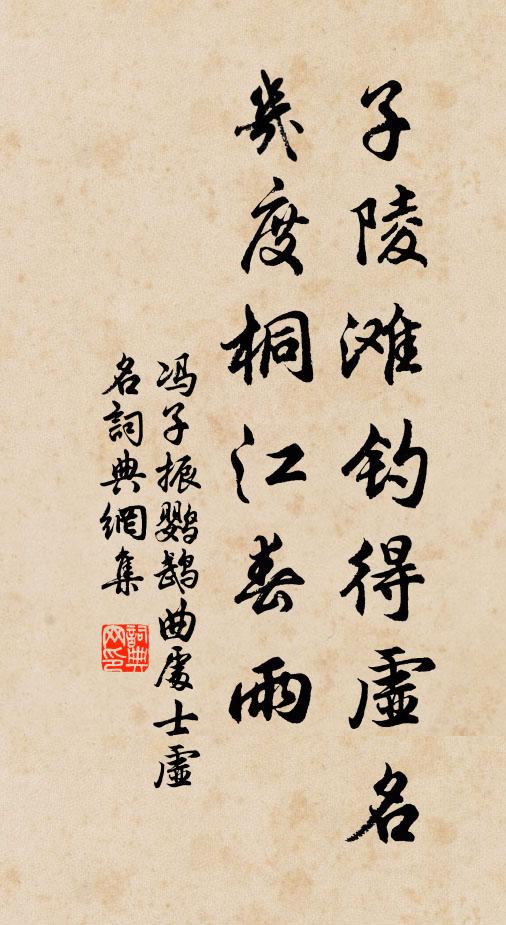 子陵滩钓得虚名
几度桐江春雨
冯子振鹦鹉曲处士虚
名词典网集
词典网印